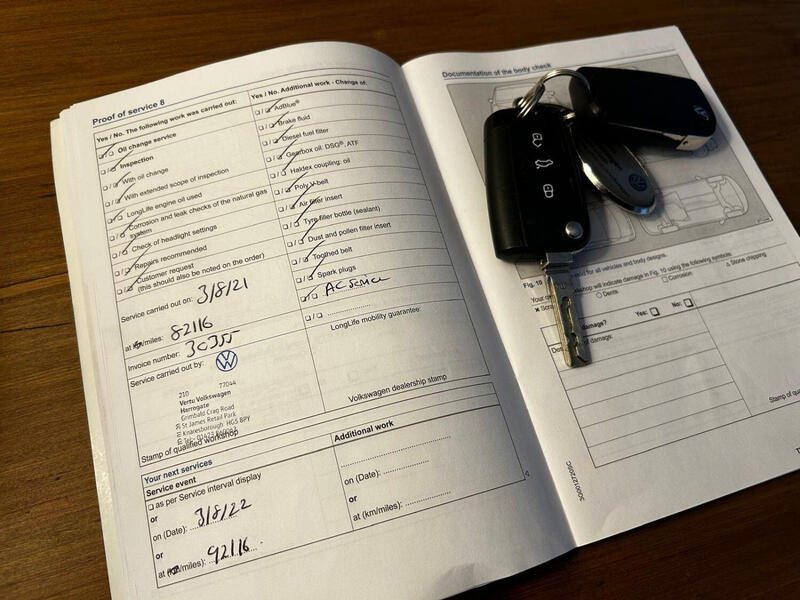 Proof of service 8
Yes / No. The following work was carried out:
Oil change service
Inspection
With oil change
With extended scope of inspection
LongLife engine oil used
Corrosion and leak checks of the natural gas
system
Check of headlight settings
Repairs recommended
Customer request
(this should also be noted on the order)
Service carried out on: 3/8/21
at km/miles: 82116
Invoice number: 30355
Service carried out by:
210 77044
Vertu Volkswagen
Harrogate
Grimbald Crag Road
St James Retail Park
Knaresborough HG5 8PY
Tel: 01423
Stamp of qualified workshop
Yes / No. Additional work - Change of:
AdBlue®
Brake fluid
Diesel fuel filter
Gearbox oil: DSG®, ATF
Haldex coupling: oil
Poly V-belt
Air filter insert
Tyre filler bottle (sealant)
Dust and pollen filter insert
Toothed belt
Spark plugs
AC Service
LongLife mobility guarantee:
Volkswagen dealership stamp
Your next services
Service event
as per Service interval display
or
on (Date): 3/8/22
or
at (km/miles): 92116
Additional work
on (Date):
or
at (km/miles):
Documentation of the body check
Fig. 10
skin for all vehicles and body designs.
Your
workshop will indicate damage in Fig. 10 using the following symbols:
Dents
Corrosion
Stone chipping
damage?
Yes:
No:
damage:
Stamp of
5G0012720SC